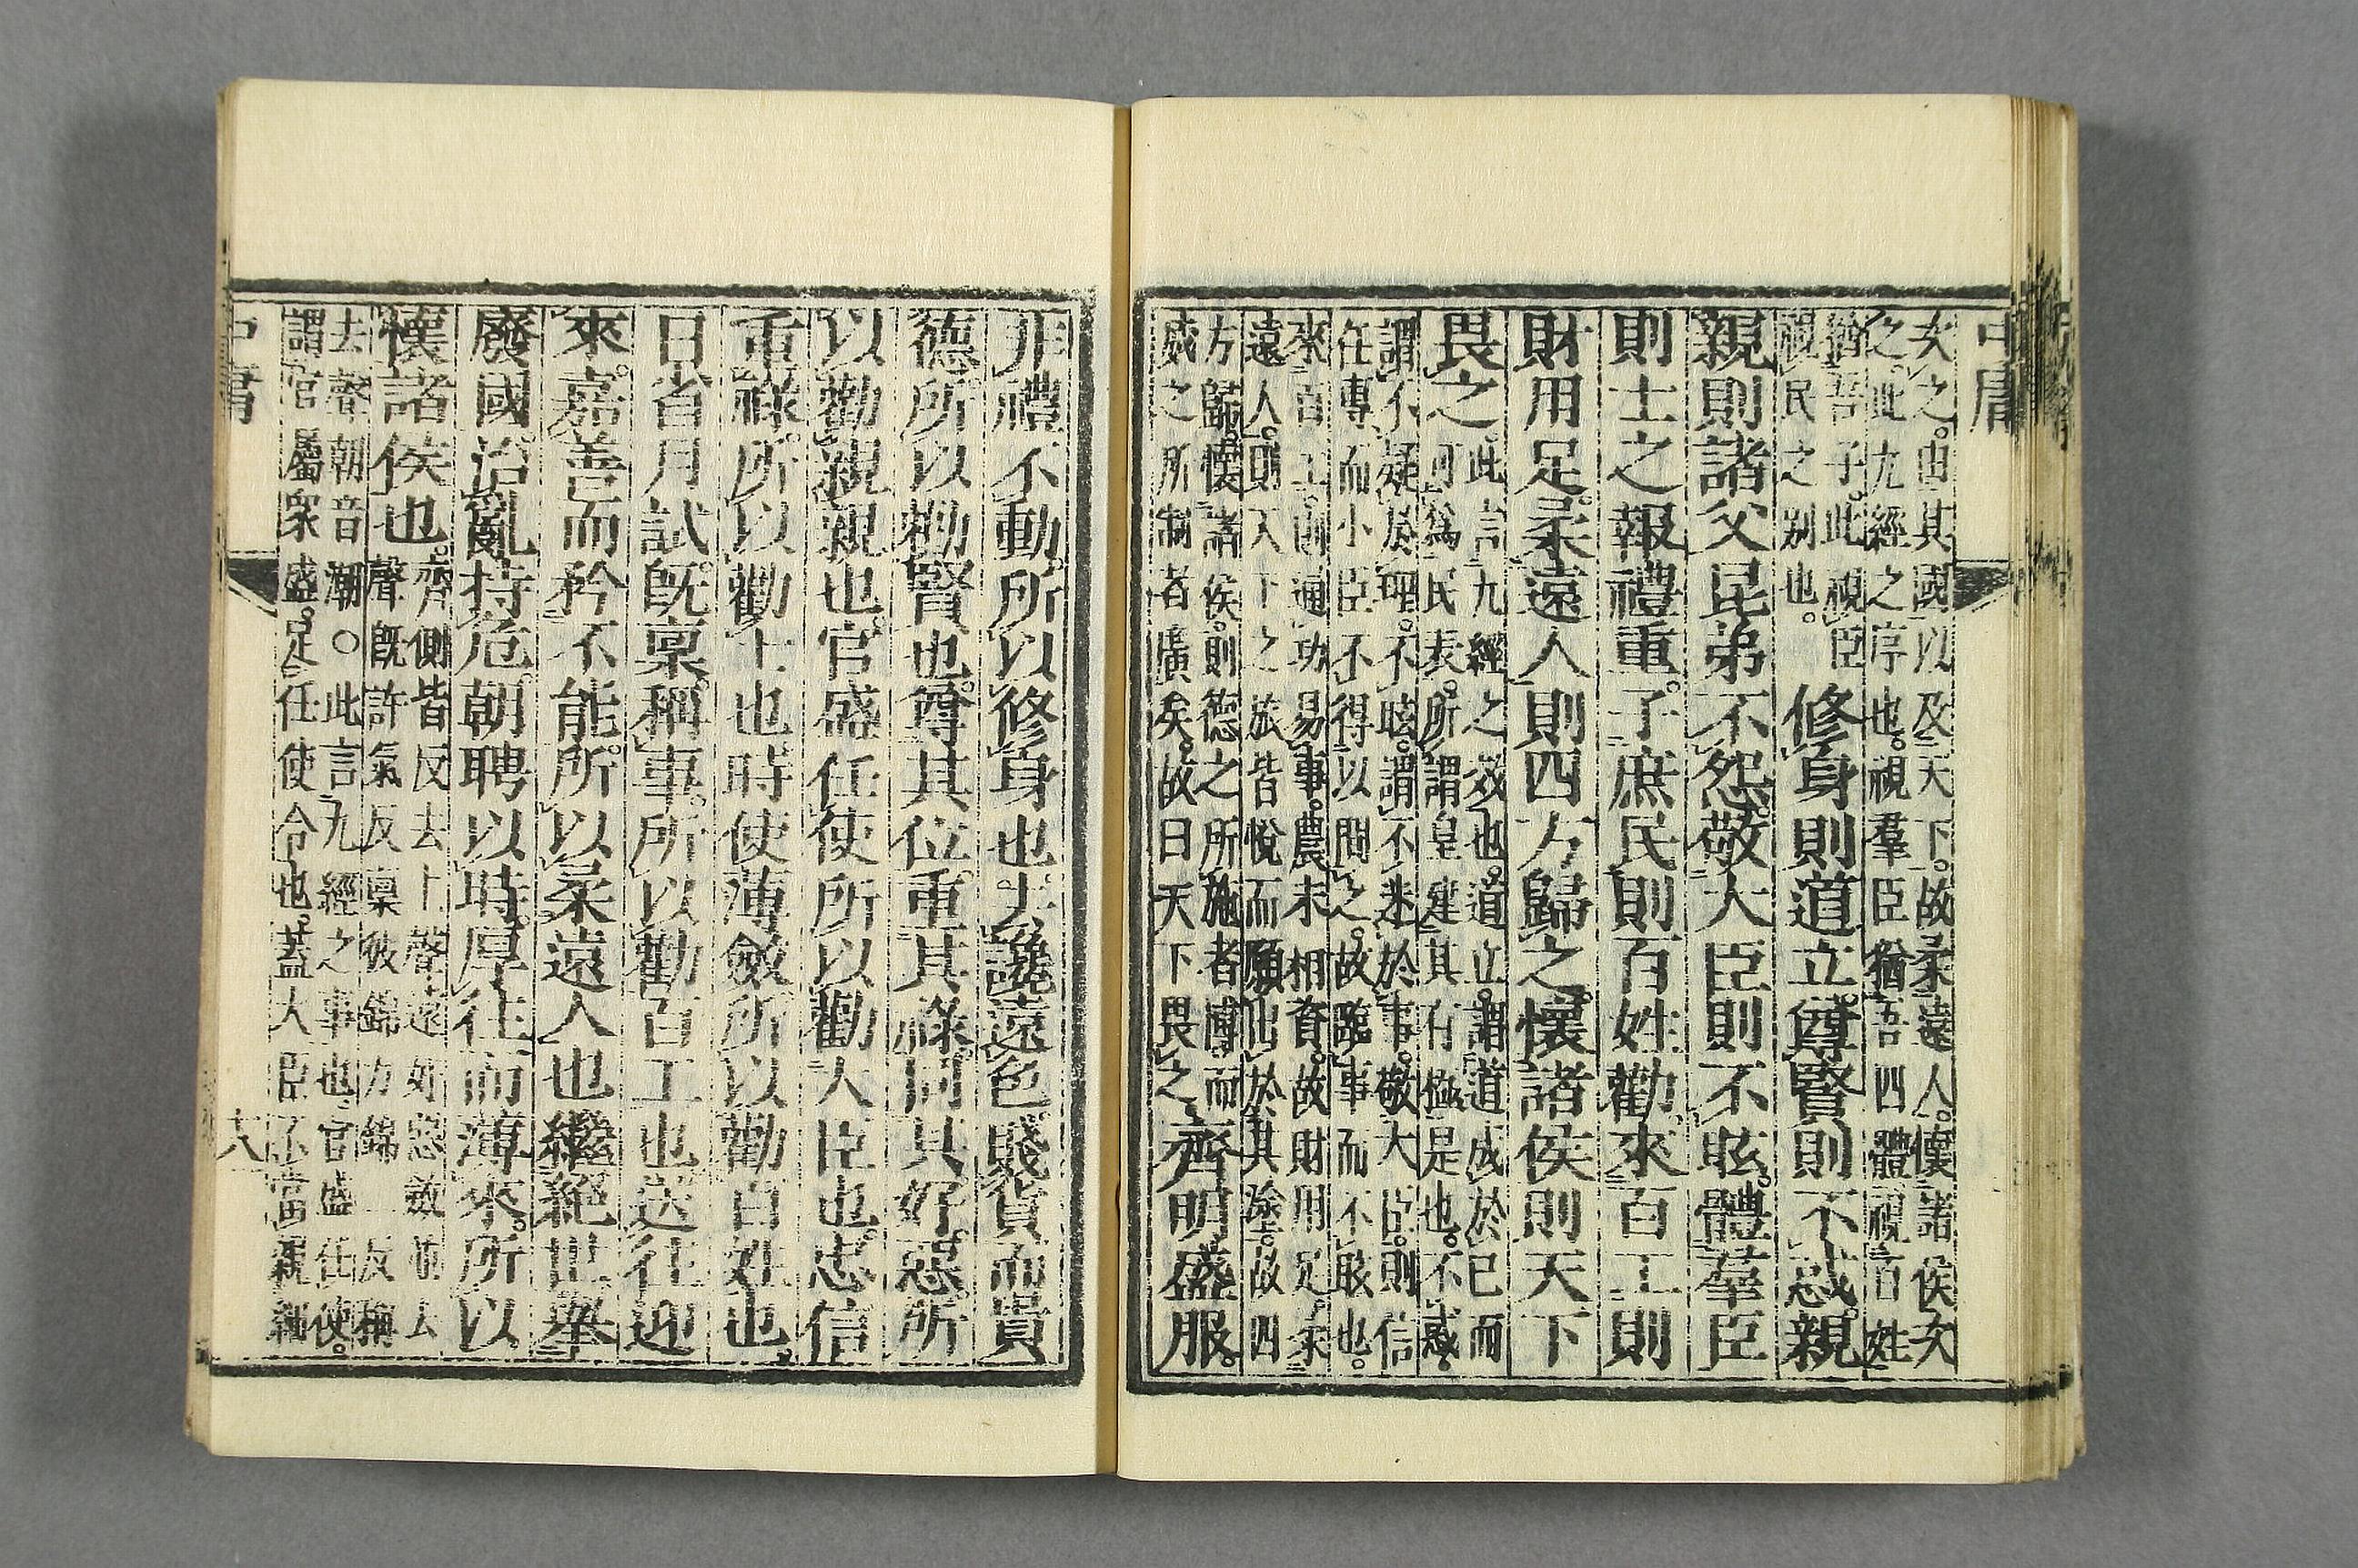 中庸
次之。由其國以及天下。故柔遠人。懷諸侯次
之。此九經之序也。視羣臣猶吾四體。視百姓
猶吾子。此視臣
視民之別也。
修身則道立。尊賢則不惑。親
親則諸父昆弟不怨。敬大臣則不眩。體羣臣
則士之報禮重。子庶民則百姓勸。來百工則
財用足。柔遠人則四方歸之。懷諸侯則天下
畏之。
此言九經之效也。道立。謂道成於己而
可爲民表。所謂皇建其有極是也。不惑。
謂不疑於理。不眩。謂不迷於事。敬大臣。則信
任專。而小臣不得以間之。故臨事而不眩也。
來百工。則通功易事。農末相資。故財用足。柔
遠人。則天下之旅皆悅而願出於其塗。故四
方歸。懷諸侯。則德之所施者博。而
威之所制者廣矣。故曰天下畏之。
齊明盛服。
非禮不動。所以修身也。去讒遠色。賤貨而貴
德。所以勸賢也。尊其位。重其祿。同其好惡。所
以勸親親也。官盛任使。所以勸大臣也。忠信
重祿。所以勸士也。時使薄斂。所以勸百姓也。
日省月試。旣稟稱事。所以勸百工也。送往迎
來。嘉善而矜不能。所以柔遠人也。繼絕世。舉
廢國。治亂持危。朝聘以時。厚往而薄來。所以
懷諸侯也。
齊側皆反去上聲遠好惡斂並去
聲旣許氣反稟彼錦力錦二反稱
去聲朝音潮。○此言九經之事也。官盛任使。
謂官屬衆盛。足任使令也。蓋大臣不當親細
中庸
十八